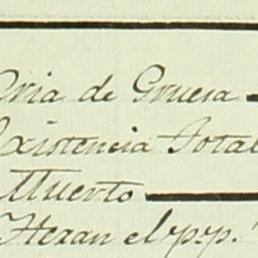 Cria de Gruesa
Existencia Total
Muerto
Hezan el p.p.